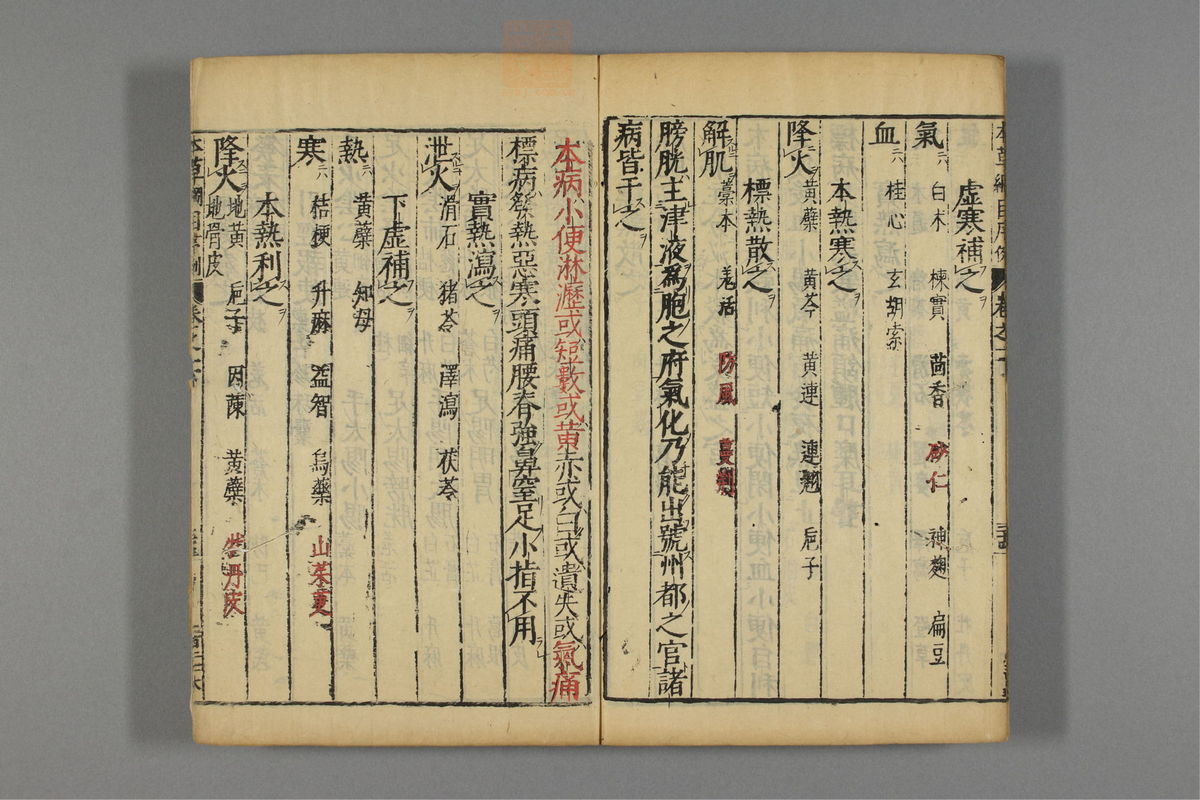 虛寒補之
氣 白木 楝實 茴香 砂仁 神麴 扁豆
血 桂心 玄胡索
本熱寒之
降火 黃蘗 黃芩 黃連 連翹 梔子
標熱散之
解肌 藁本 羌活 防風 蔓荊
膀胱主津液為胞之府氣化乃能出號州都之官諸
病皆干之
本病小便淋瀝或短數或黃赤或白或遺失或氣痛
標病發熱惡寒頭痛腰脊強鼻窒足小指不用
實熱瀉之
泄火 滑石 猪苓 澤瀉 茯苓
下虛補之
熱 黃蘗 知母
寒 桔梗 升麻 益智 烏藥 山茱萸
本熱利之
降火 地黃 梔子 因蔯 黃蘗 牡丹皮
地骨皮